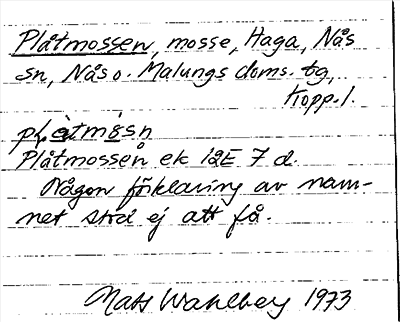 Plåtmossen, mosse, Haga, Nås
sn, Nås o. Malungs doms. tg,
Kopp. l.
Plåtmossen ek 12E 7 d.
Någon förklaring av nam-
net stod ej att få.
Mats Wahlberg 1973